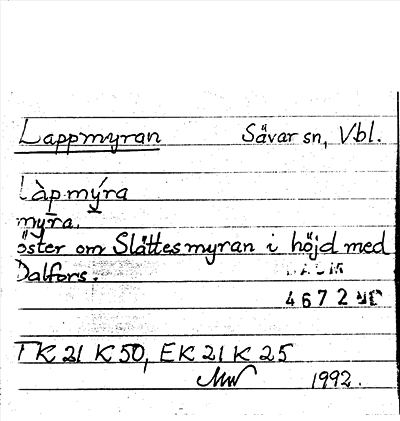 Lappmyran Sävar sn, Vbl.
Làpmýra
myra.
öster om Slåttesmyran i höjd med
Dalfors.
4672
TK 21 K 50, EK 21 K 25
1992.